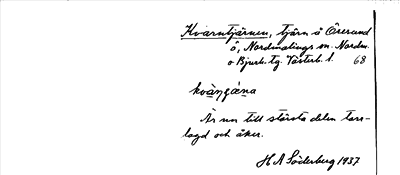 Kvarntjärnen, tjärn å Örerund
ö, Nordmalings sn. Nordm.
o Bjurh. tg. Västerb. l. 68
kvà̱ŋɕæ̀na
Är nu till största delen torr-
lagd och åker.
H A Söderberg 1937